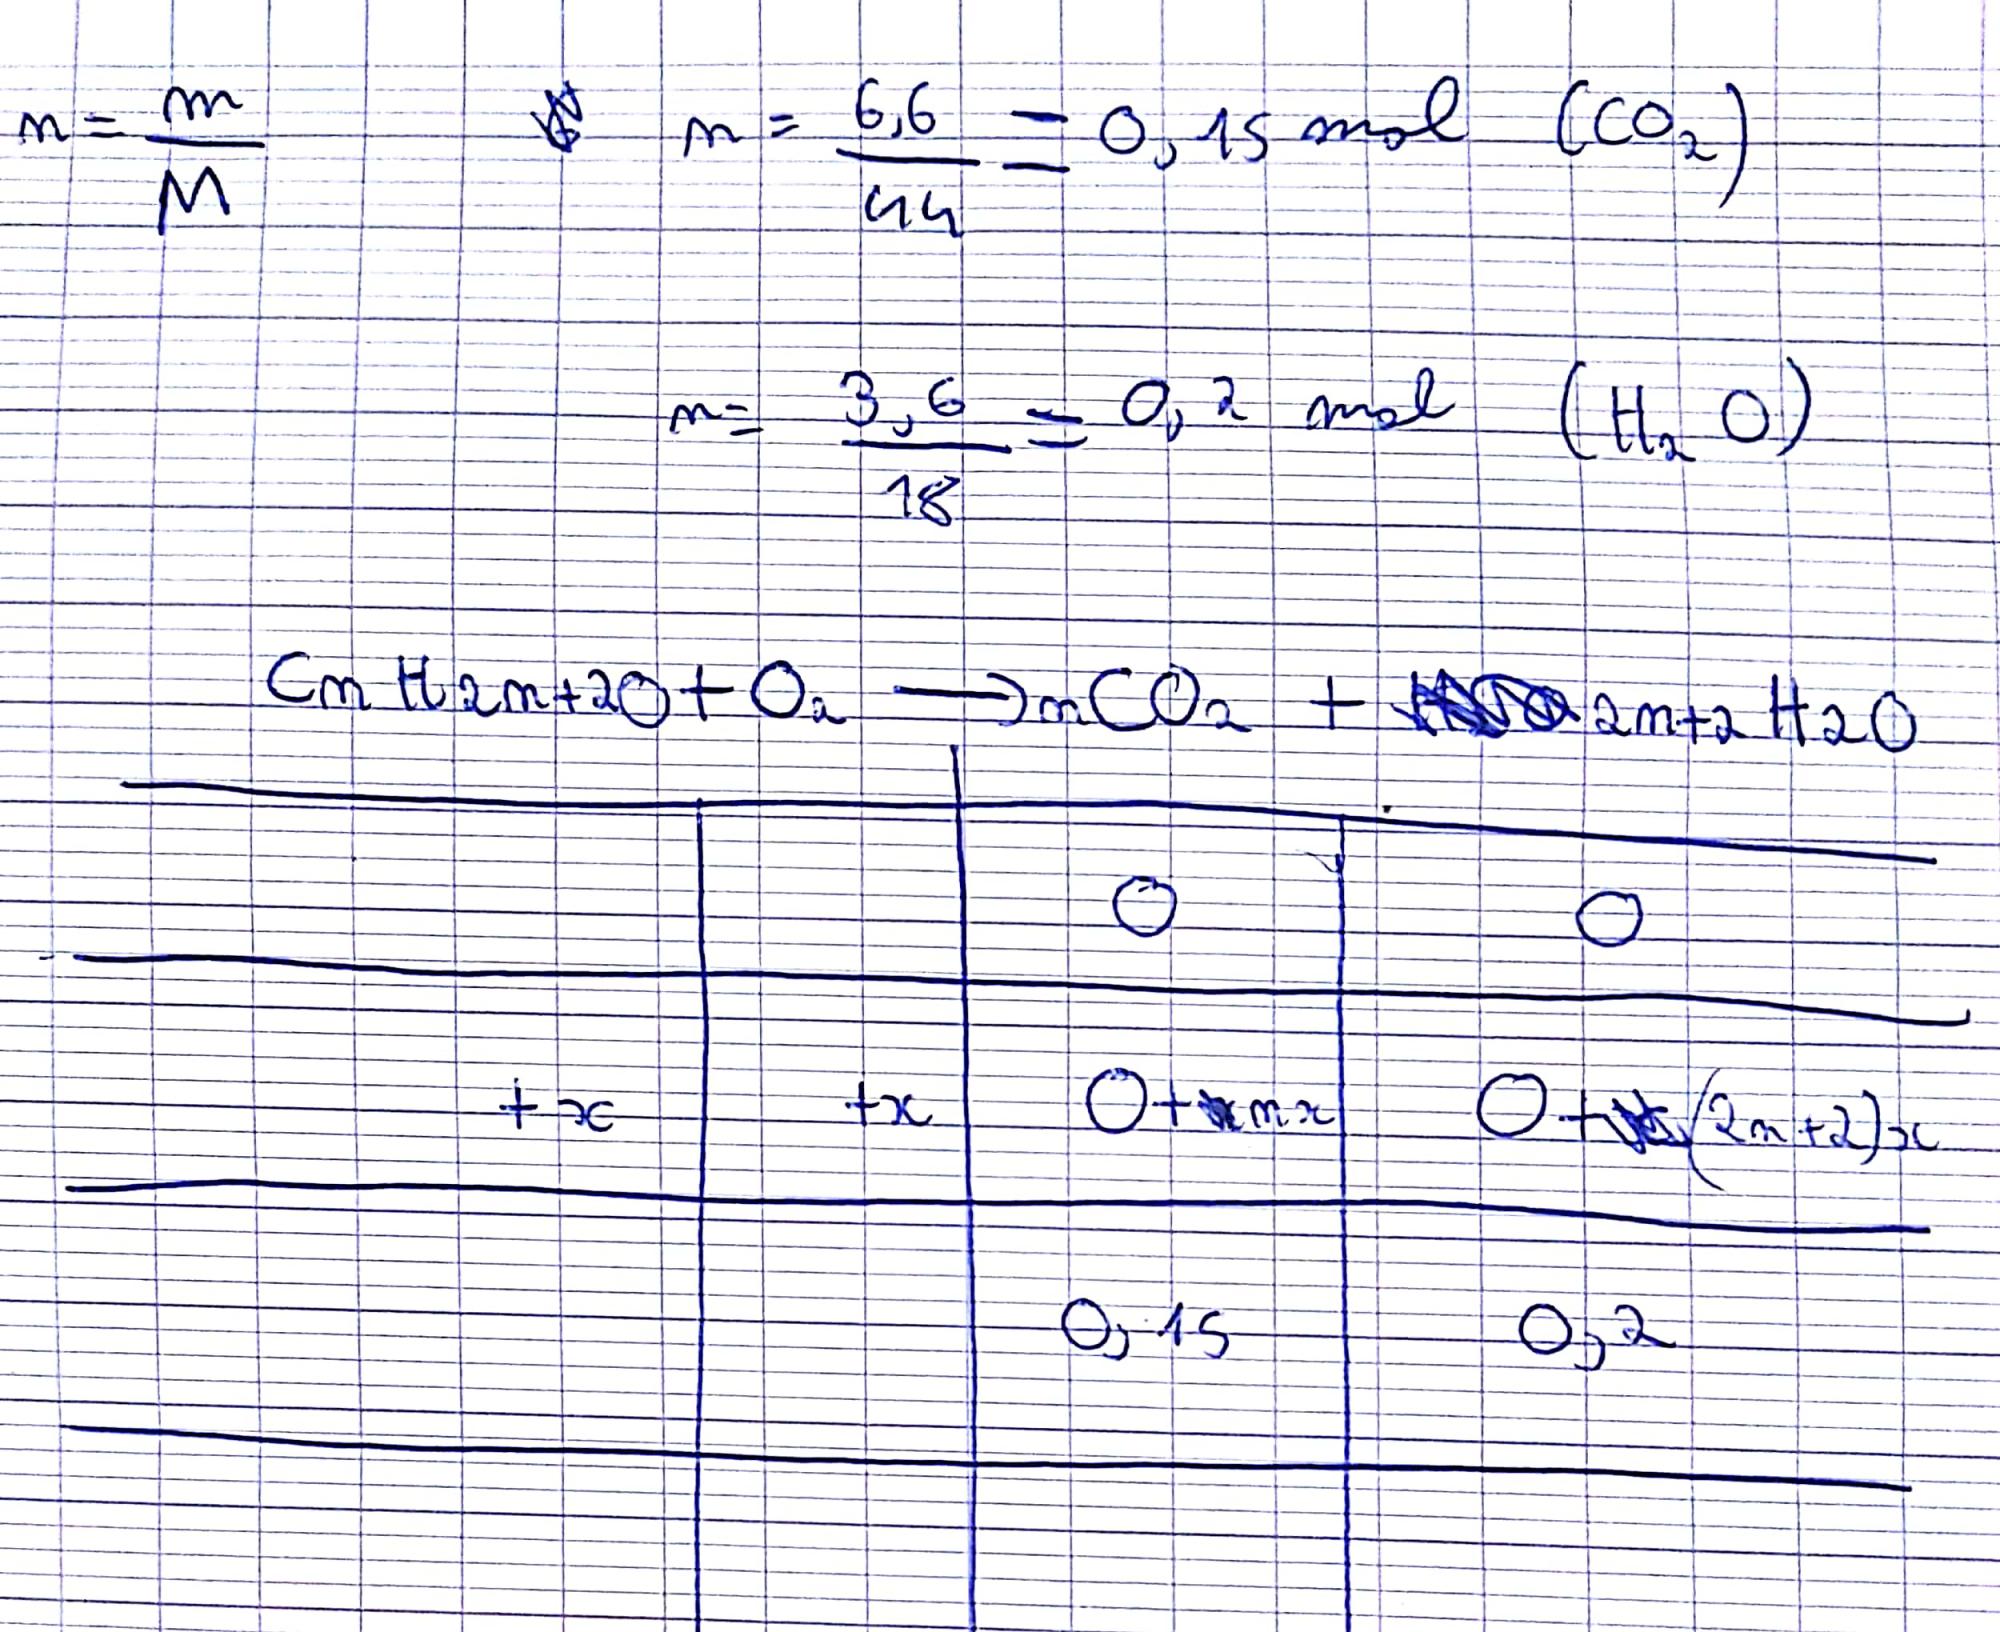 n = m/M n = 6,6/44 = 0,15 mol (CO₂)
n = 3,6/18 = 0,2 mol (H₂O)
CnH2n+2O + O₂ → nCO₂ + 2n+2 H2O
0 0
+x +x 0+nx 0+(2n+2)x
0,15 0,2